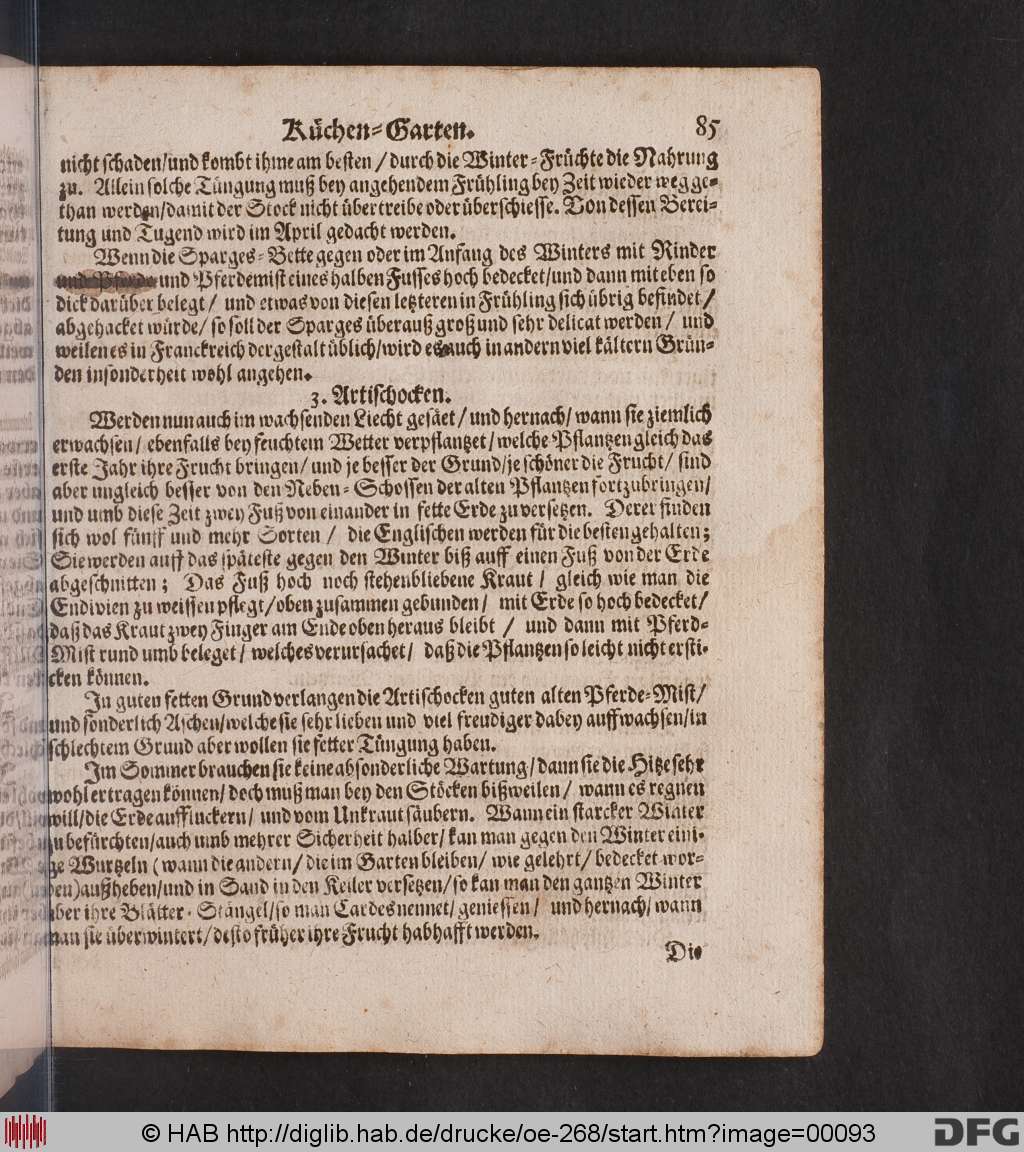 Küchen-Garten. 85
nicht schaden/und kombt ihme am besten/durch die Winter-Früchte die Nahrung
zu. Allein solche Tüngung muß bey angehendem Frühling bey Zeit wieder weg ge-
than werden/damit der Stock nicht übertreibe oder überschiesse. Von dessen Berei-
tung und Tugend wird im April gedacht werden.
Wenn die Sparges-Bette gegen oder im Anfang des Winters mit Rinder
und Pferdemist eines halben Fusses hoch bedecket/und dann mit eben so
dick darüber belegt/ und etwas von diesen letzteren in Frühling sich übrig befindet/
abgehacket würde/ so soll der Sparges überauß groß und sehr delicat werden/ und
weilen es in Franckreich dergestalt üblich/wird es auch in andern viel kältern Grün-
den insonderheit wohl angehen.
3. Artischocken.
Werden nun auch im wachsenden Liecht gesäet/ und hernach/ wann sie ziemlich
erwachsen/ ebenfalls bey feuchtem Wetter verpflantzet/ welche Pflantzen gleich das
erste Jahr ihre Frucht bringen/ und je besser der Grund/je schöner die Frucht/ sind
aber ungleich besser von den Neben-Schossen der alten Pflantzen fortzubringen/
und umb diese Zeit zwey Fuß von einander in fette Erde zu versetzen. Derer finden
sich wol fünff und mehr Sorten/ die Englischen werden für die besten gehalten;
Sie werden auff das späteste gegen den Winter biß auff einen Fuß von der Erde
abgeschnitten; Das Fuß hoch noch stehenbliebene Kraut/ gleich wie man die
Endivien zu weissen pflegt/oben zusammen gebunden/ mit Erde so hoch bedecket/
daß das Kraut zwey Finger am Ende oben heraus bleibt/ und dann mit Pferd-
Mist rund umb beleget/ welches verursachet/ daß die Pflantzen so leicht nicht ersti-
cken können.
In guten fetten Grund verlangen die Artischocken guten alten Pferde-Mist/
und sonderlich Aschen/welche sie sehr lieben und viel freudiger dabey auffwachsen/in
schlechtem Grund aber wollen sie fetter Tüngung haben.
Im Sommer brauchen sie keine absonderliche Wartung/ dann sie die Hitze sehr
wohl ertragen können/ doch muß man bey den Stöcken bißweilen/ wann es regnen
will/die Erde auffluckern/ und vom Unkraut säubern. Wann ein starcker Winter
zu befürchten/auch umb mehrer Sicherheit halber/ kan man gegen den Winter eini-
ge Wurtzeln (wann die andern/ die im Garten bleiben/ wie gelehrt/ bedecket wor-
den) außheben/und in Sand in den Keller versetzen/so kan man den gantzen Winter
über ihre Blätter-Stängel/so man Cardes nennet/ geniessen/ und hernach/ wann
man sie überwintert/desto früher ihre Frucht habhafft werden.
Die
© HAB http://diglib.hab.de/drucke/oe-268/start.htm?image=00093
DFG